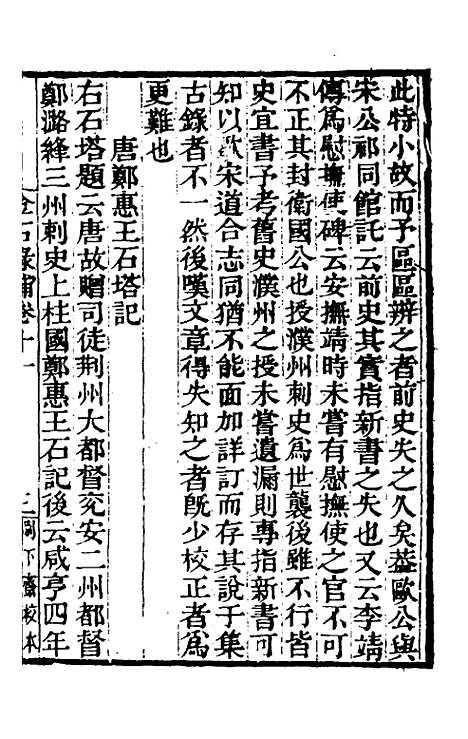 此特小故而予區區辨之者前史失之久矣蓋歐公與
宋公祁同館託云前史其實指新書之失也又云李靖
傳爲慰撫使碑云安撫靖時未嘗有慰撫使之官不可
不正其封衛國公也授濮州刺史爲世襲後雖不行皆
史宜書予考舊史濮州之授未嘗遺漏則專指新書可
知以歐宋道合志同猶不能面加詳訂而存其說于集
古錄者不一然後嘆文章得失知之者旣少校正者爲
更難也
唐鄭惠王石塔記
右石塔題云唐故贈司徒荆州大都督兖安二州都督
鄭潞絳三州刺史上柱國鄭惠王石記後云咸亨四年
金石錄補卷十一
二
別下齋校本